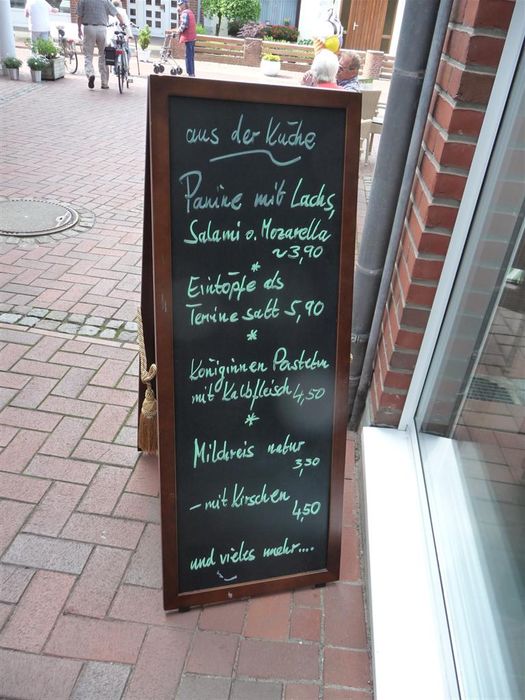 aus der Küche
Panine mit Lachs,
Salami o. Mozarella
~3,90
*
Eintöpfe als
Terrine satt 5,90
*
Königinnen Pasteten
mit Kalbfleisch 4,50
*
Milchreis natur
3,50
- mit Kirschen
4,50
und vieles mehr....